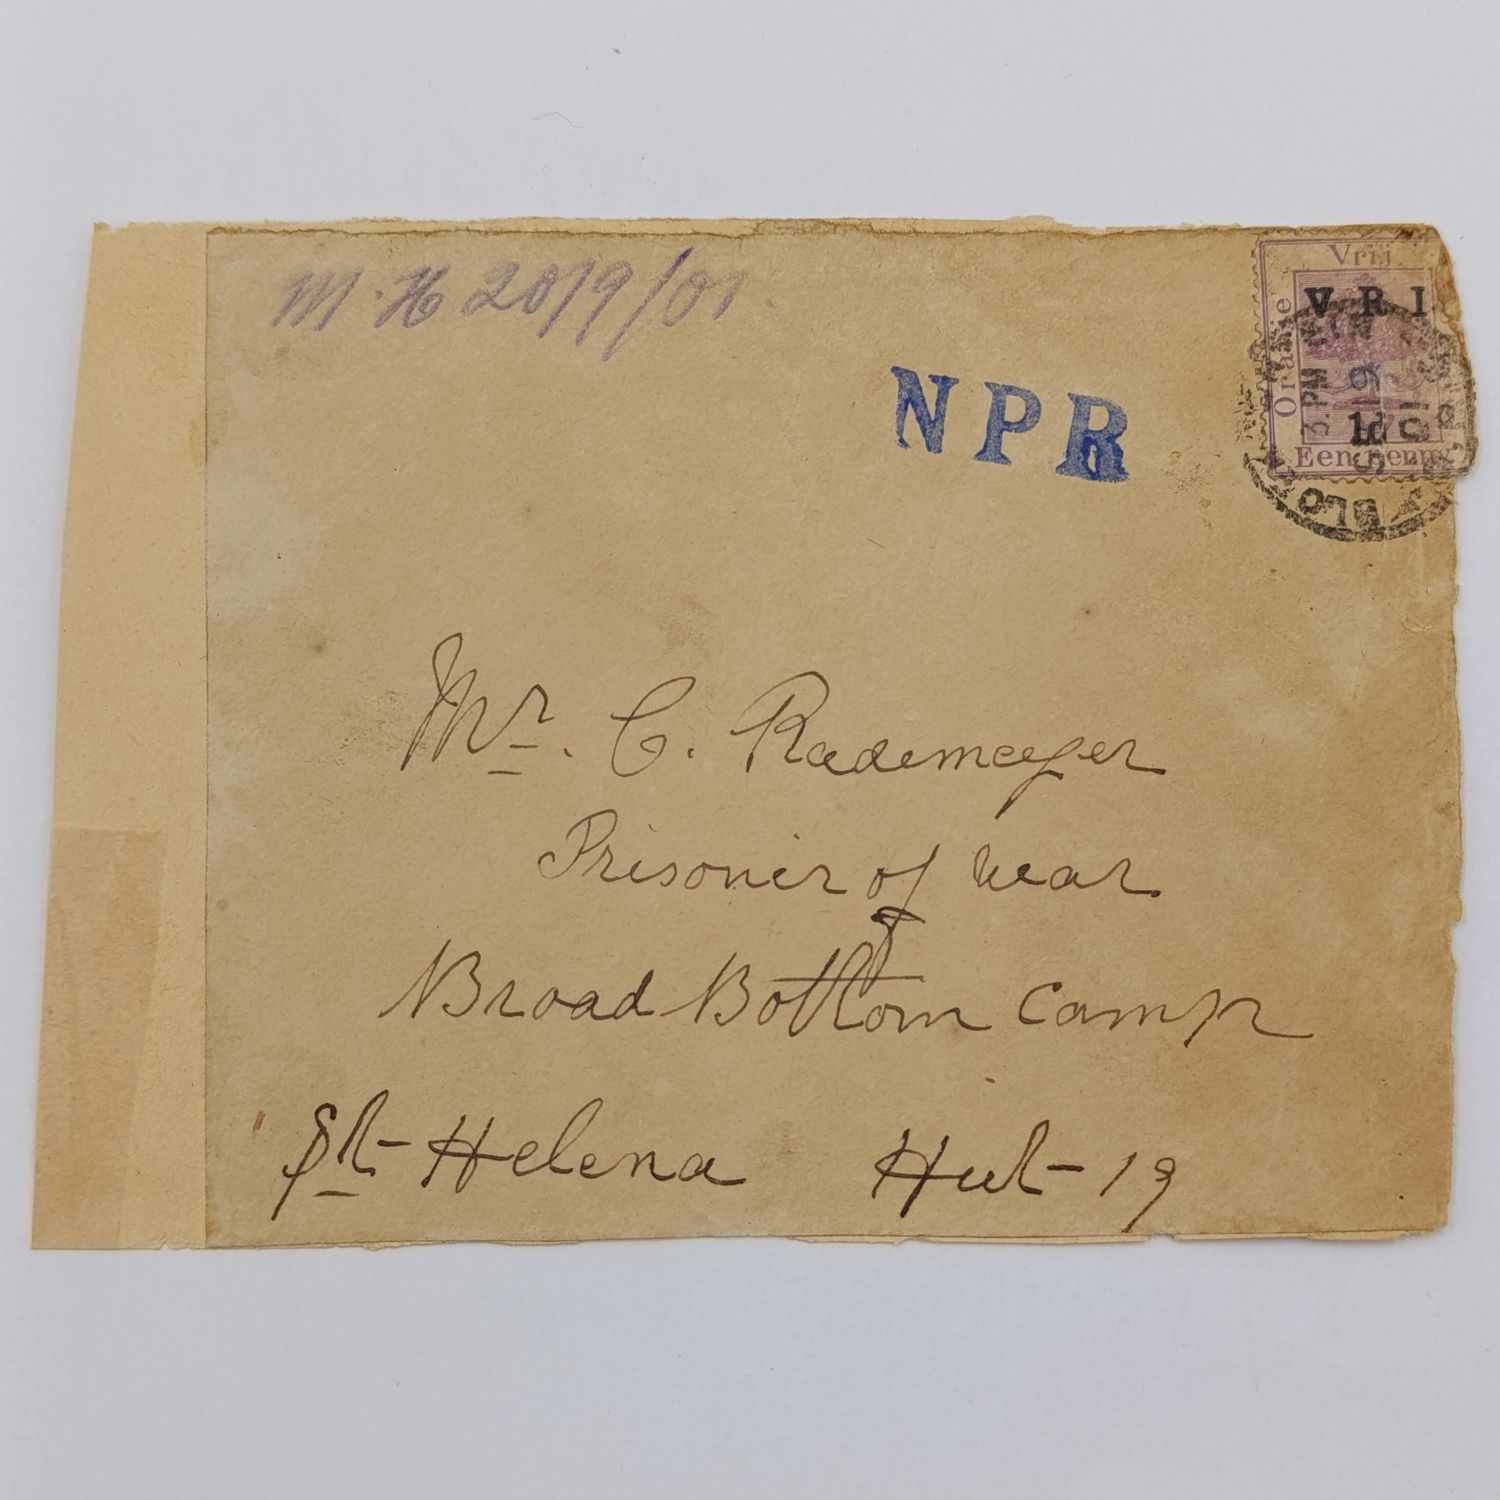 M.H 20/9/01.
NPR
Vrij
Oranje
V R I
3. PM
SP 19
01
1d
Een penny
BLO
Mr. C. Rademeyer
Prisoner of War
Broad Bottom Camp
St Helena Hut 19